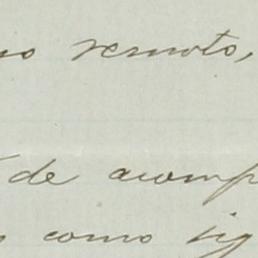 remoto,
de acomp
como sig